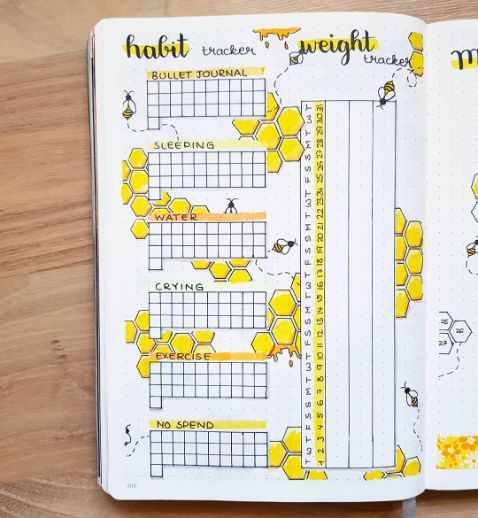 habit tracker
weight tracker
BULLET JOURNAL
SLEEPING
WATER
CRYING
EXERCISE
NO SPEND
T W T F S S M T W T F S S M T W T F S S M T W T F S S M T W T
1 2 3 4 5 6 7 8 9 10 11 12 13 14 15 16 17 18 19 20 21 22 23 24 25 26 27 28 29 30 31
m